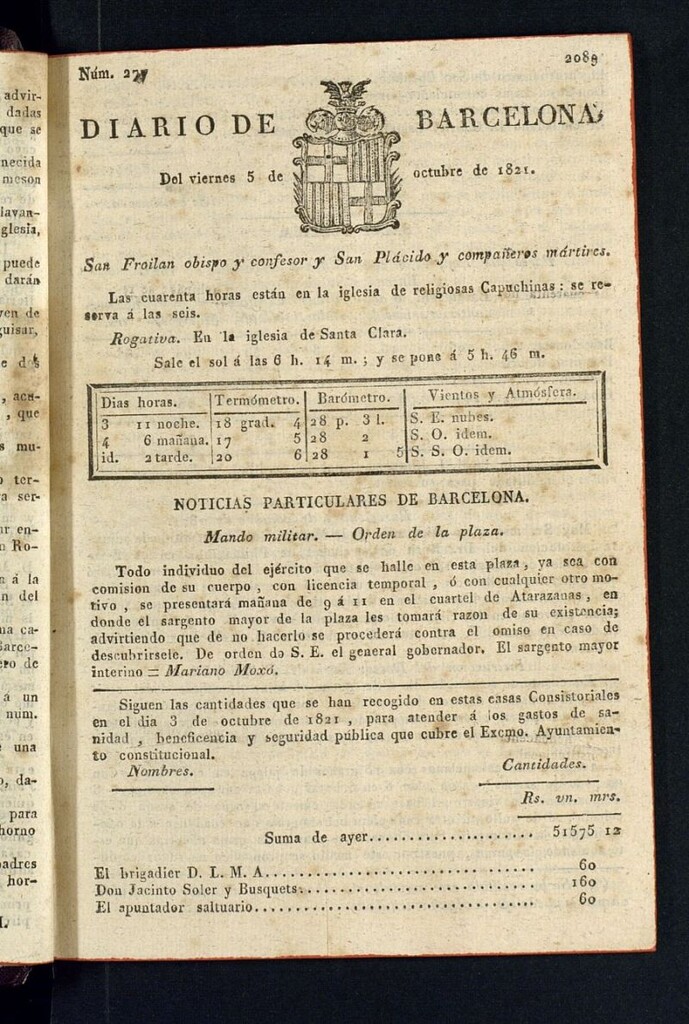 advir-
dadas
que se
necida
meson
lavan-
glesia,
puede
darán
ven de
guisar,
, aca-
, que
s mu-
ter-
a ser-
ar en-
n Ro-
a á la
n del
na ca-
Barce-
ero de
á un
num.
una
o, da-
para
horno
padres
hor-
Núm. 277
2089
DIARIO DE BARCELONA,
Del viernes 5 de octubre de 1821.
San Froilan obispo y confesor y San Plácido y compañeros mártires.
Las cuarenta horas están en la iglesia de religiosas Capuchinas: se re-
serva á las seis.
Rogativa. En la iglesia de Santa Clara.
Sale el sol á las 6 h. 14 m.; y se pone á 5 h. 46 m.
Dias horas. Termómetro. Barómetro. Vientos y Atmósfera.
3 11 noche. 18 grad. 4 28 p. 3 l. S. E. nubes.
4 6 mañana. 17 5 28 2 S. O. idem.
id. 2 tarde. 20 6 28 1 5 S. S. O. idem.
NOTICIAS PARTICULARES DE BARCELONA.
Mando militar. — Orden de la plaza.
Todo individuo del ejército que se halle en esta plaza, ya sea con
comision de su cuerpo, con licencia temporal, ó con cualquier otro mo-
tivo, se presentará mañana de 9 á 11 en el cuartel de Atarazanas, en
donde el sargento mayor de la plaza les tomará razon de su existencia;
advirtiendo que de no hacerlo se procederá contra el omiso en caso de
descubrirsele. De orden de S. E. el general gobernador. El sargento mayor
interino = Mariano Moxó.
Siguen las cantidades que se han recogido en estas casas Consistoriales
en el dia 3 de octubre de 1821, para atender á los gastos de sa-
nidad, beneficencia y seguridad pública que cubre el Excmo. Ayuntamien-
to constitucional.
Nombres. Cantidades.
Rs. vn. mrs.
Suma de ayer.................... 51575 12
El brigadier D. L. M. A................................ 60
Don Jacinto Soler y Busquets............................ 160
El apuntador saltuario.................................. 60